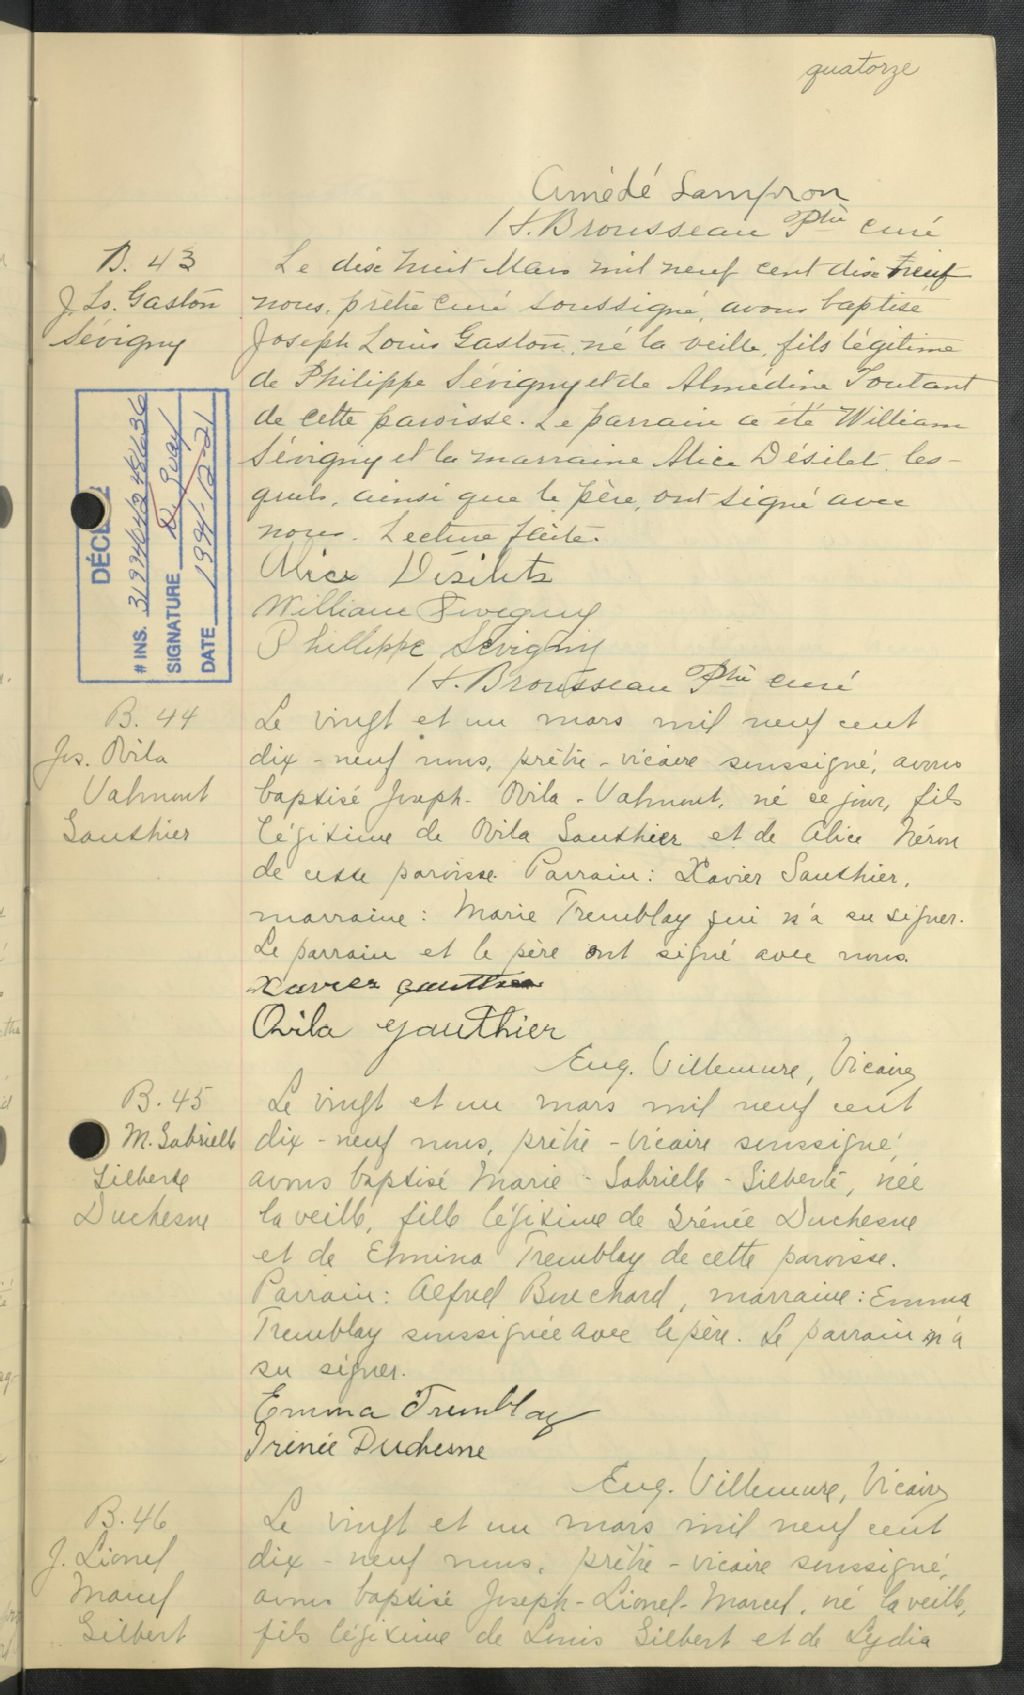 quatorze
Amédé Lampron
H. Brousseau Ptre curé
B. 43
J. Ls. Gaston
Sévigny
Le dix huit Mars mil neuf cent dix neuf
nous, prêtre curé soussigné, avons baptisé
Joseph Louis Gaston, né la veille, fils légitime
de Philippe Sévigny et de Almédine Toutant
de cette paroisse. Le parrain a été William
Sévigny et la marraine Alice Désilet, les-
quels, ainsi que le père, ont signé avec
nous. Lecture faite.
Alice Désilets
William Sevegny
Phillippe Sevigny
H. Brousseau Ptre curé
DÉCÉ
# INS.
SIGNATURE
DATE 1994-12-21
B. 44
Jos. Ovila
Valmont
Gauthier
Le vingt et un mars mil neuf cent
dix-neuf nous, prêtre-vicaire soussigné, avons
baptisé Joseph-Ovila-Valmont, né ce jour, fils
légitime de Ovila Gauthier et de Alice Néron
de cette paroisse. Parrain: Xavier Gauthier,
marraine: Marie Tremblay qui n'a su signer.
Le parrain et le père ont signé avec nous.
Xavier Gauthier
Ovila Gauthier
Eug. Villemure, Vicaire
B. 45
M. Gabrielle
Gilberte
Duchesne
Le vingt et un mars mil neuf cent
dix-neuf nous, prêtre-vicaire soussigné,
avons baptisé Marie-Gabrielle-Gilberte, née
la veille, fille légitime de Irénée Duchesne
et de Elmina Tremblay de cette paroisse.
Parrain: Alfred Bouchard, marraine: Emma
Tremblay soussignée avec le père. Le parrain n'a
su signer.
Emma Tremblay
Irénée Duchesne
Eug. Villemure, Vicaire
B. 46
J. Lionel
Marcel
Gilbert
Le vingt et un mars mil neuf cent
dix-neuf nous, prêtre-vicaire soussigné,
avons baptisé Joseph-Lionel-Marcel, né la veille,
fils légitime de Louis Gilbert et de Lydia